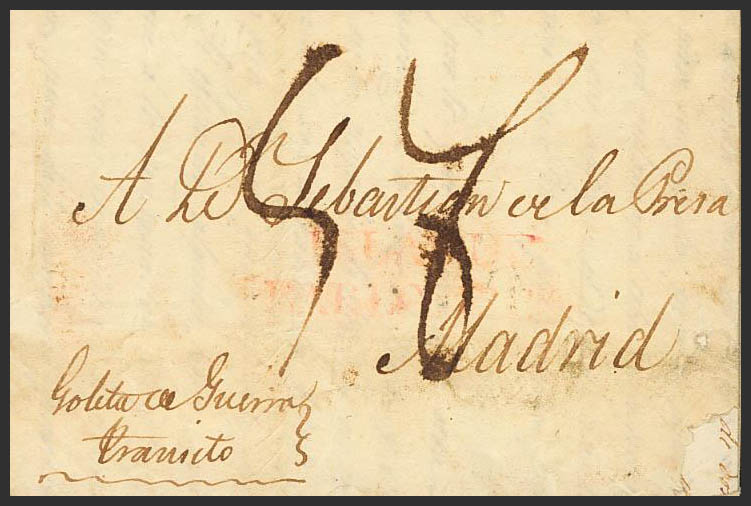 57
A Dn Sebastian de la Presa
Madrid
Goleta de Guerra
transito